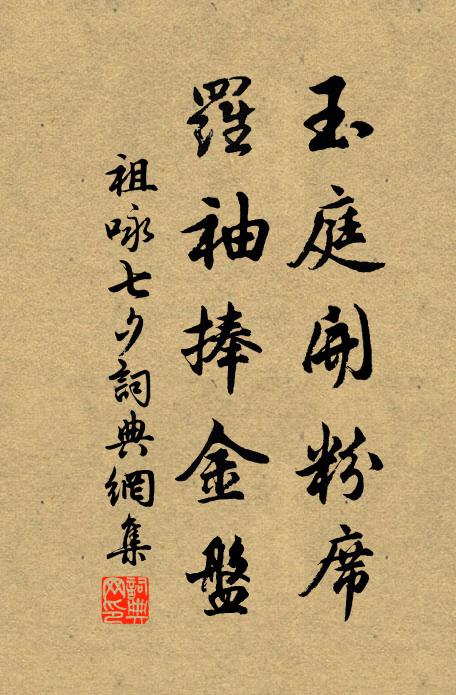 玉庭開粉席
羅袖捧金盤
祖咏七夕詞典網集
詞典网印